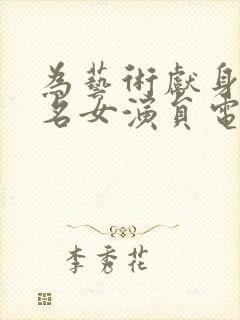 為藝術獻身
名女演員電
李秀花